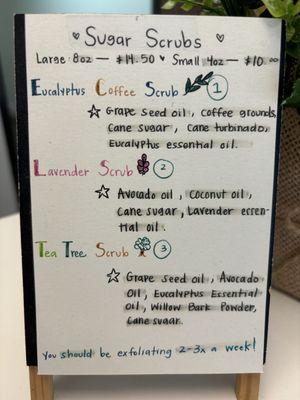 Sugar Scrubs
Large 8oz — $14.50 ♥ Small 4oz — $10.00
Eucalyptus Coffee Scrub 1
☆ Grape seed oil, coffee grounds,
cane sugar, cane turbinado,
Eucalyptus essential oil.
Lavender Scrub 2
☆ Avocado oil, Coconut oil,
cane sugar, Lavender essen-
tial oil.
Tea Tree Scrub 3
☆ Grape seed oil, Avocado
Oil, Eucalyptus Essential
oil, Willow Bark Powder,
cane sugar.
you should be exfoliating 2-3x a week!